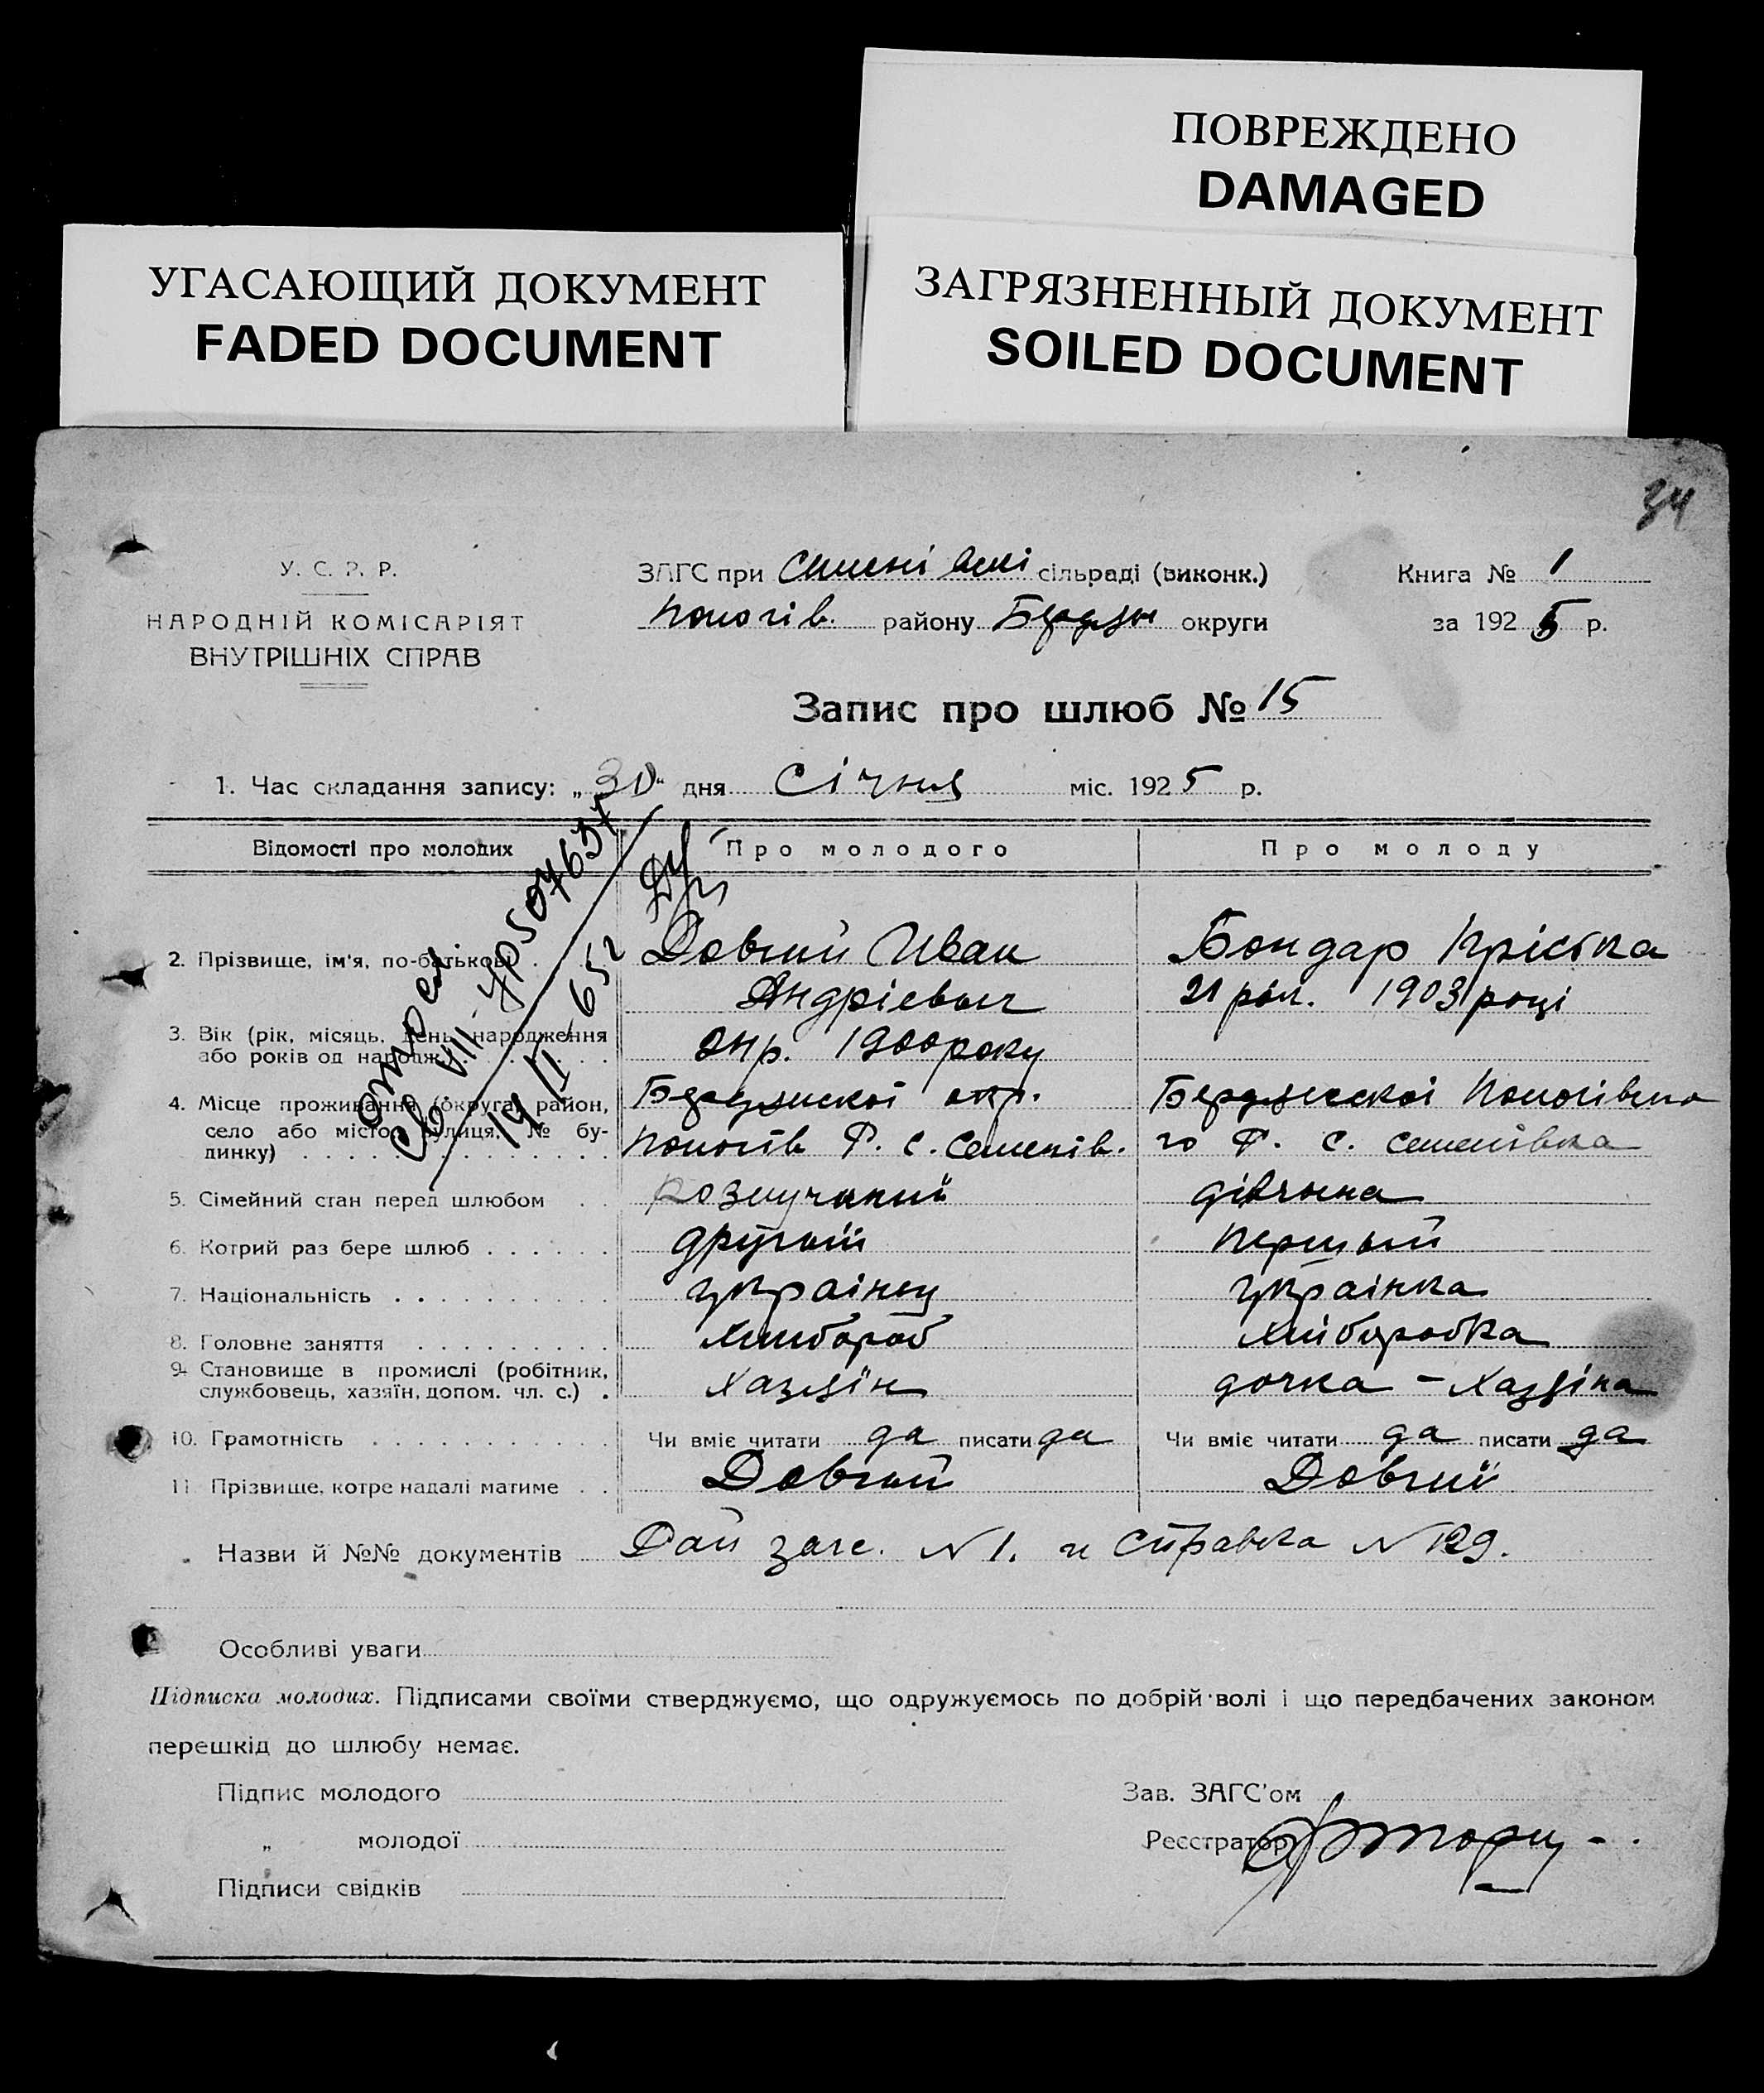 ПОВРЕЖДЕНО
DAMAGED
УГАСАЮЩИЙ ДОКУМЕНТ
FADED DOCUMENT
ЗАГРЯЗНЕННЫЙ ДОКУМЕНТ
SOILED DOCUMENT
34
У. С. Р. Р.
НАРОДНІЙ КОМІСАРІЯТ
ВНУТРІШНІХ СПРАВ
ЗАГС при сільраді (виконк.)
Пологів. району Бердян округи
Книга № 1
за 1925 р.
Запис про шлюб № 15
1. Час складання запису: „30" дня Січня міс. 1925 р.
Відомості про молодих
Про молодого
Про молоду
2. Прізвище, ім'я, по-батькові
Довгий Иван
Андріевич
Бондар Крістка
21 рік. 1903 році
3. Вік (рік, місяць, день народження
або років од народж.)
1900 року
4. Місце проживання (округа, район,
село або місто, вулиця, № бу-
динку)
Бердянскої окр.
Пологів Р. С. Семенів.
Бердянскої Пологівско
го Р. С. Семенівка
5. Сімейний стан перед шлюбом
дівчина
6. Котрий раз бере шлюб
другий
первый
7. Національність
українец
українка
8. Головне заняття
хлибороб
хлиборобка
9. Становище в промислі (робітник,
службовець, хазяїн, допом. чл. с.)
хазяїн
дочка - хазяїна
10. Грамотність
Чи вміє читати да писати да
Чи вміє читати да писати да
11. Прізвище, котре надалі матиме
Довгий
Довгий
Назви й №№ документів загс. N 1. и справка N 129.
Особливі уваги
Підписка молодих. Підписами своїми стверджуємо, що одружуємось по добрій волі і що передбачених законом
перешкід до шлюбу немає.
Підпис молодого
„ молодої
Підписи свідків
Зав. ЗАГС'ом
Реєстратор